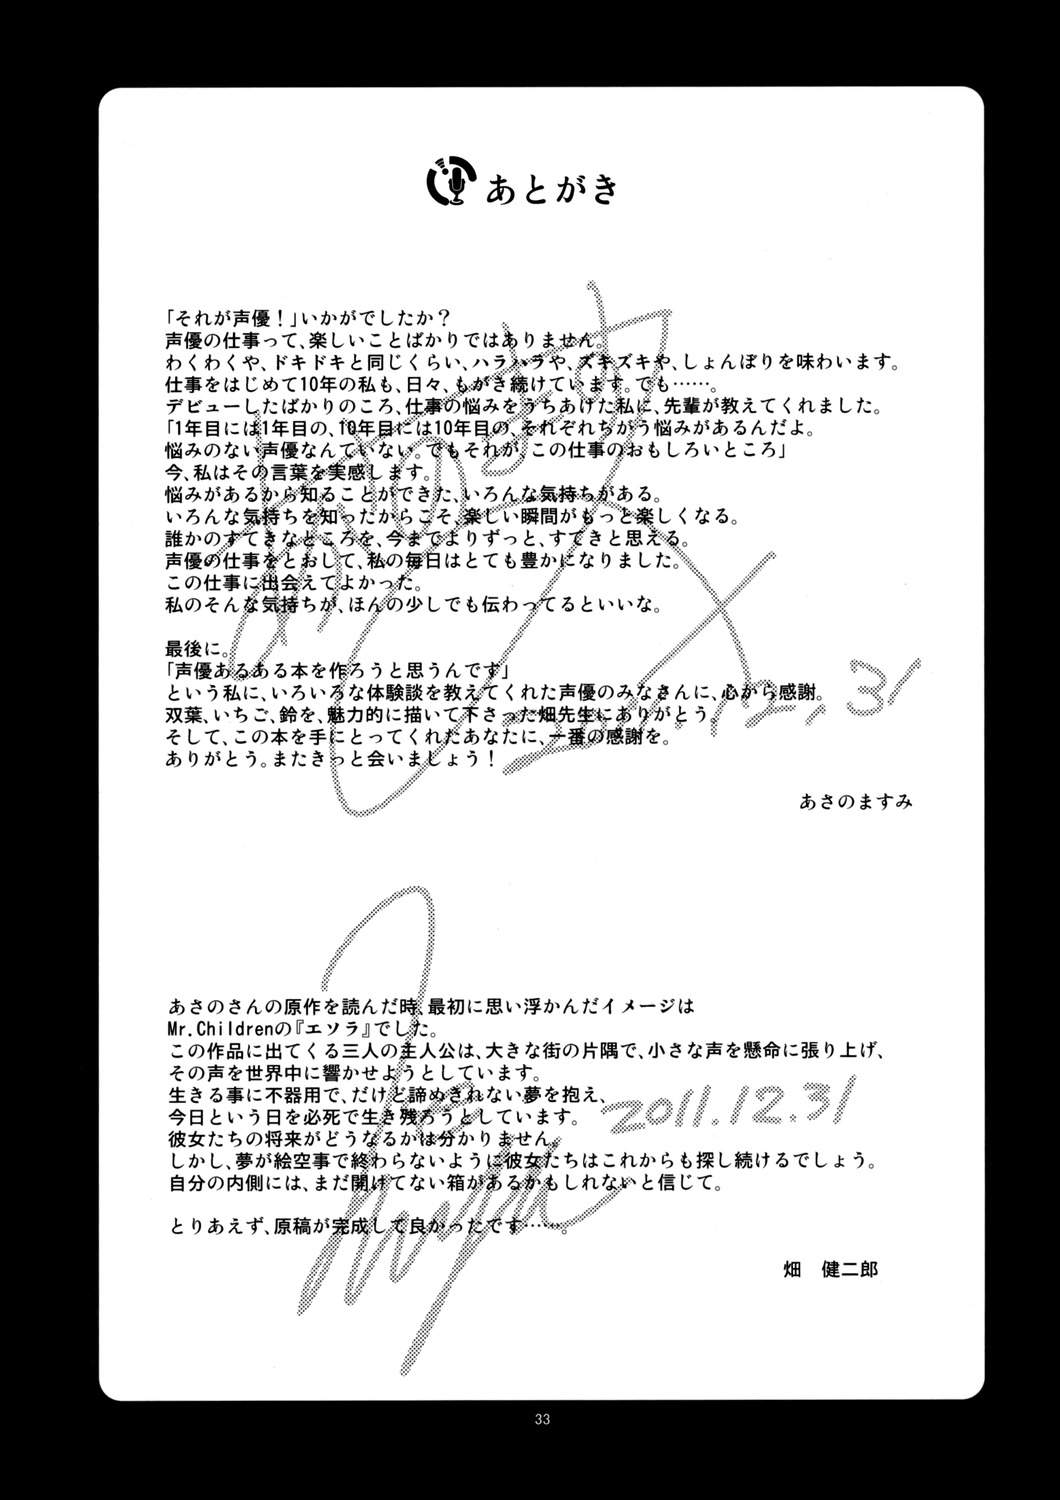 あとがき
「それが声優！」いかがでしたか？
声優の仕事って、楽しいことばかりではありません。
わくわくや、ドキドキと同じくらい、ハラハラや、ズキズキや、しょんぼりを味わいます。
仕事をはじめて10年の私も、日々、もがき続けています。でも……。
デビューしたばかりのころ、仕事の悩みをうちあけた私に、先輩が教えてくれました。
「1年目には1年目の、10年目には10年目の、それぞれちがう悩みがあるんだよ。
悩みのない声優なんていない。でもそれが、この仕事のおもしろいところ」
今、私はその言葉を実感します。
悩みがあるから知ることができた、いろんな気持ちがある。
いろんな気持ちを知ったからこそ、楽しい瞬間がもっと楽しくなる。
誰かのすてきなところを、今までよりずっと、すてきと思える。
声優の仕事をとおして、私の毎日はとても豊かになりました。
この仕事に出会えてよかった。
私のそんな気持ちが、ほんの少しでも伝わってるといいな。
最後に。
「声優あるある本を作ろうと思うんです」
という私に、いろいろな体験談を教えてくれた声優のみなさんに、心から感謝。
双葉、いちご、鈴を、魅力的に描いて下さった畑先生にありがとう。
そして、この本を手にとってくれたあなたに、一番の感謝を。
ありがとう。またきっと会いましょう！
2011.12.31
あさのますみ
あさのさんの原作を読んだ時、最初に思い浮かんだイメージは
Mr.Childrenの『エソラ』でした。
この作品に出てくる三人の主人公は、大きな街の片隅で、小さな声を懸命に張り上げ、
その声を世界中に響かせようとしています。
生きる事に不器用で、だけど諦めきれない夢を抱え、
今日という日を必死で生き残ろうとしています。
2011.12.31
彼女たちの将来がどうなるかは分かりません。
しかし、夢が絵空事で終わらないように彼女たちはこれからも探し続けるでしょう。
自分の内側には、まだ開けてない箱があるかもしれないと信じて。
とりあえず、原稿が完成して良かったです……。
畑　健二郎
33